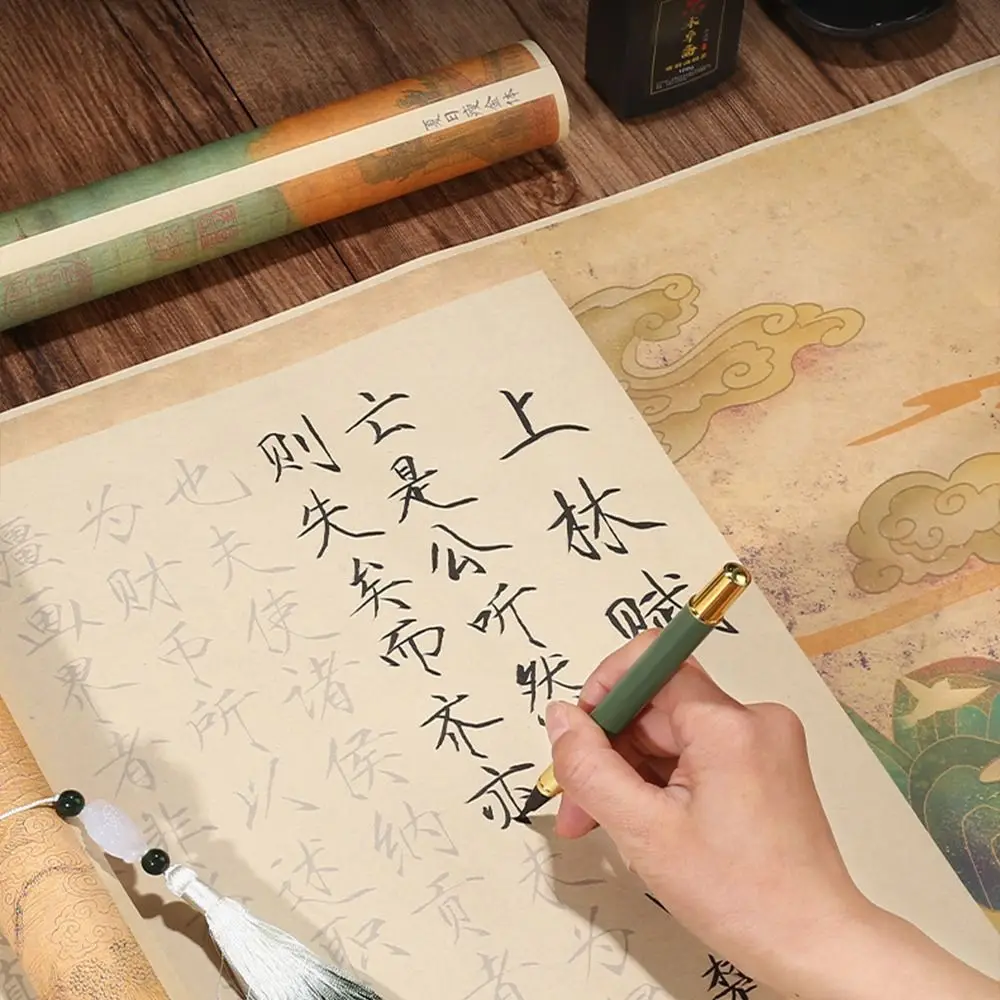 上林赋
亡是公听然
楚
则失矣而齐亦未为
也夫使诸侯纳贡者
为财币所以述职
疆画界者非
瘦金体
100g